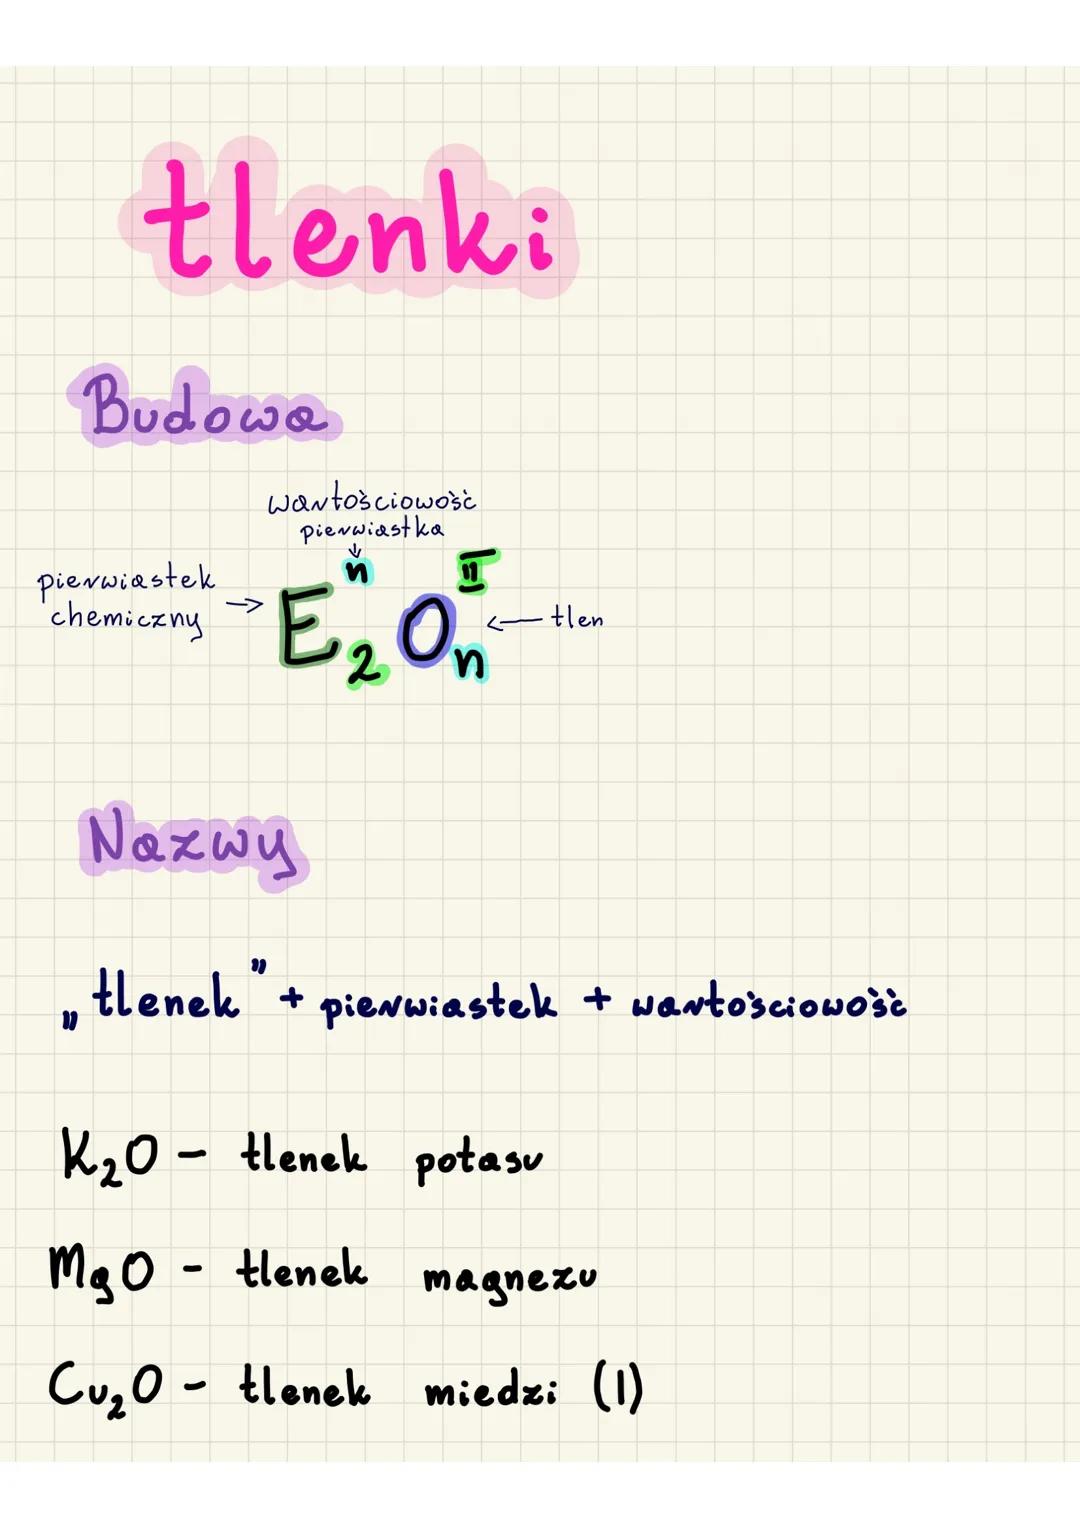 tlenki
Budowa
wartościowość
pierwiastka
pierwiastek
chemiczny
n II
E₂Oₙ
tlen
Nazwy
„tlenek” + pierwiastek + wartościowość
K₂O – tlenek potasu
MgO - tlenek magnezu
Cu₂O - tlenek miedzi (I)